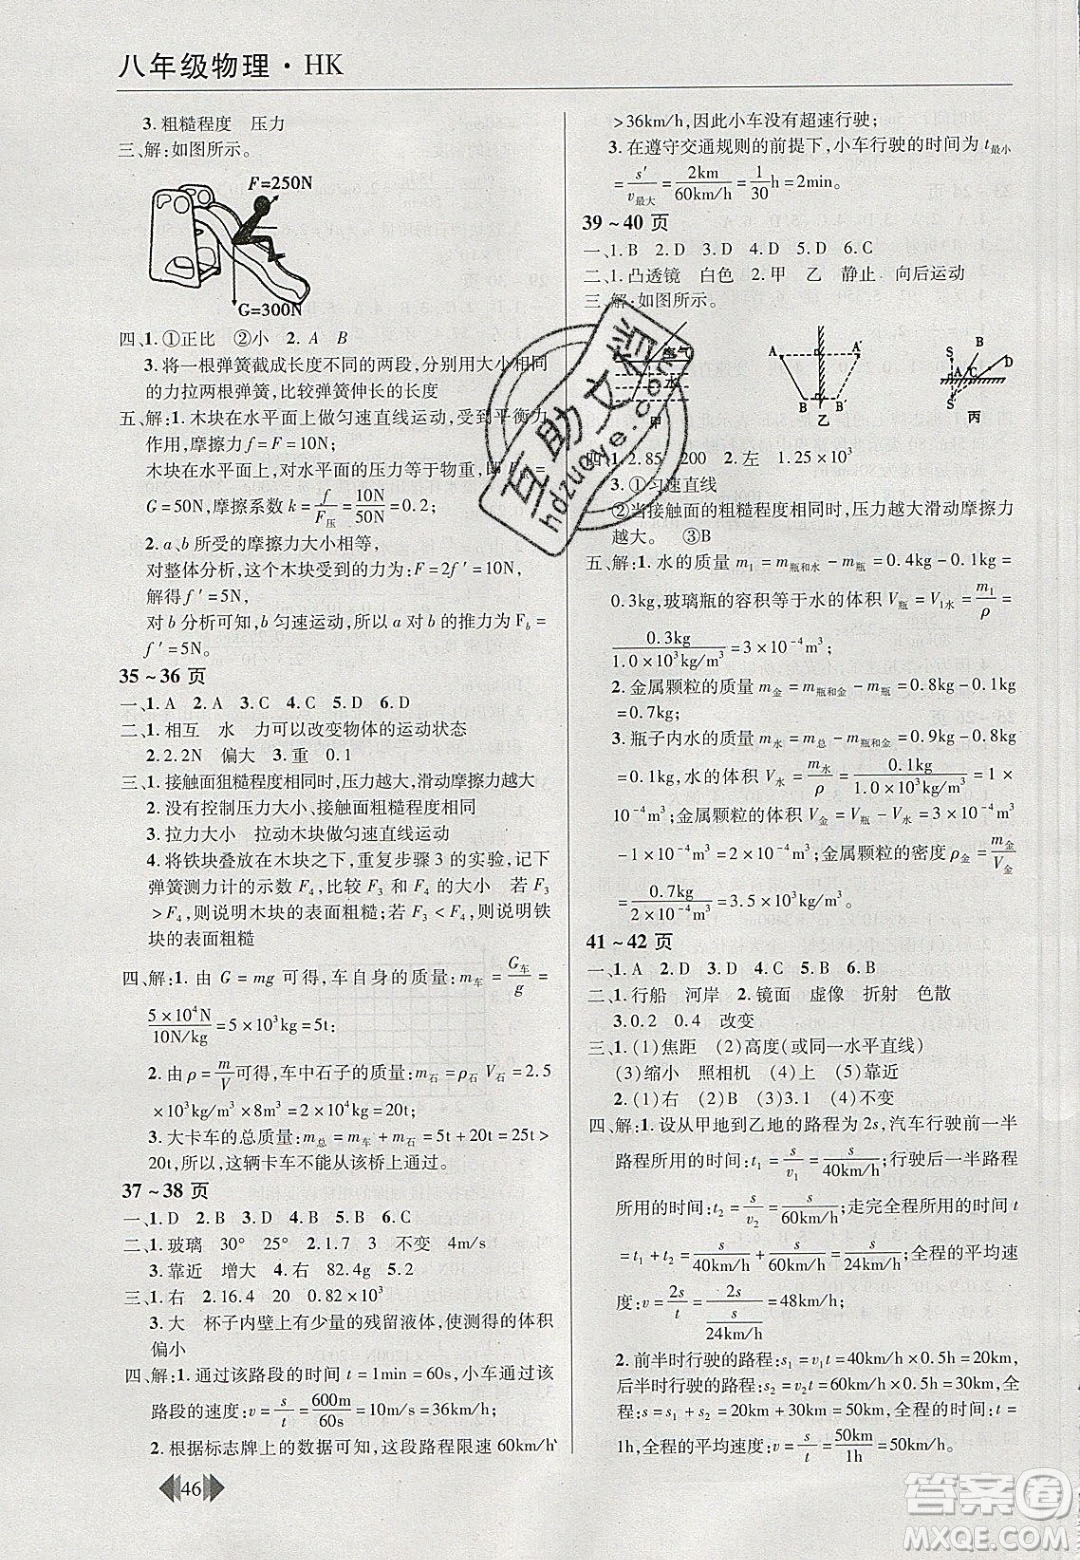 八年级物理·HK
3.粗糙程度 压力
三、解:如图所示。
F=250N
G=300N
四、1.①正比 ②小 2.A B
3.将一根弹簧截成长度不同的两段,分别用大小相同
的力拉两根弹簧,比较弹簧伸长的长度
五、解:1.木块在水平面上做匀速直线运动,受到平衡力
作用,摩擦力f=F=10N;
木块在水平面上,对水平面的压力等于物重,即F压=
G=50N,摩擦系数k=f/F压=10N/50N=0.2;
2.a、b所受的摩擦力大小相等,
对整体分析,这个木块受到的力为:F=2f′=10N;
解得f′=5N;
对b分析可知,b匀速运动,所以a对b的推力为Fb=
f′=5N。
35~36页
一、1.A 2.A 3.C 4.C 5.D 6.D
二、1.相互 水 力可以改变物体的运动状态
2.2.2N 偏大 3.重 0.1
三、1.接触面狙糙程度相同时,压力越大,滑动摩擦力越大
2.没有控制压力大小、接触面粗糙程度相同
3.拉力大小 拉动木块做匀速直线运动
4.将铁块叠放在木块之下,重复步骤3的实验,记下
弹簧测力计的示数F4,比较F3和F4的大小 若F3
>F4,则说明木块的表面粗糙;若F3<F4,则说明铁
块的表面粗糙
四、解:1.由G=mg可得,车自身的质量:m车=G车/g=
5×10⁴N/10N/kg=5×10³kg=5t;
2.由ρ=m/V可得,车中石子的质量:m石=ρ石V石=2.5
×10³kg/m³×8m³=2×10⁴kg=20t;
3.大卡车的总质量:m总=m车+m石=5t+20t=25t>
20t,所以,这辆卡车不能从该桥上通过。
37~38页
一、1.D 2.B 3.D 4.B 5.B 6.C
二、1.玻璃 30° 25° 2.1.7 3 不变 4m/s
3.靠近 增大 4.右 82.4g 5.2
三、1.右 2.16.4 20 0.82×10³
3.大 杯子内壁上有少量的残留液体,使测得的体积
偏小
四、解:1.通过该路段的时间t=1min=60s,小车通过该
路段的速度:v=s/t=600m/60s=10m/s=36km/h;
2.根据标志牌上的数据可知,这段路程限速60km/h
46
>36km/h,因此小车没有超速行驶;
3.在遵守交通规则的前提下,小车行驶的时间为t最小
=s′/v最大=2km/60km/h=1/30h=2min。
39~40页
一、1.B 2.D 3.D 4.A 5.D 6.C
二、1.凸透镜 白色 2.甲 乙 静止 向后运动
三、解:如图所示。
空气
水
甲
A A′
B B′
乙
S B D
A C
S′
丙
四、1.2.85 200 2.左 1.25×10³
3.①匀速直线
②当接触面的粗糙程度相同时,压力越大滑动摩擦力
越大。 ③B
五、解:1.水的质量m1=m瓶和水-m瓶=0.4kg-0.1kg=
0.3kg,玻璃瓶的容积等于水的体积V瓶=V1水=m1/ρ=
0.3kg/1.0×10³kg/m³=3×10⁻⁴m³;
2.金属颗粒的质量m金=m瓶和金-m瓶=0.8kg-0.1kg
=0.7kg;
3.瓶子内水的质量m水=m总-m瓶和金=0.9kg-0.8kg
=0.1kg,水的体积V水=m水/ρ=0.1kg/1.0×10³kg/m³=1×
10⁻⁴m³;金属颗粒的体积V金=V瓶-V水=3×10⁻⁴m³
-1×10⁻⁴m³=2×10⁻⁴m³;金属颗粒的密度ρ金=m金/V金
=0.7kg/2×10⁻⁴m³=3.5×10³kg/m³。
41~42页
一、1.A 2.D 3.D 4.C 5.B 6.B
二、1.行船 河岸 2.镜面 虚像 折射 色散
3.0.2 0.4 改变
三、1.(1)焦距 (2)高度(或同一水平直线)
(3)缩小 照相机 (5)靠近
2.(1)右 (2)B (3)3.1 (4)不变
四、解:1.设从甲地到乙地的路程为2s,汽车行驶前一半
路程所用的时间:t1=s/v1=s/40km/h;行驶后一半路程
所用的时间:t2=s/v2=s/60km/h;走完全程所用的时间t
=t1+t2=s/40km/h+s/60km/h=s/24km/h;全程的平均速
度:v=2s/t=2s/(s/24km/h)=48km/h;
2.前半时行驶的路程:s1=v1t=40km/h×0.5h=20km,
后半时行驶的路程:s2=v2t=60km/h×0.5h=30km,全
程s=s1+s2=20km+30km=50km,全程的时间:t=
1h,全程的平均速度:v=s/t=50km/1h=50km/h。
互助文档
hdzuoye.com
答案圈
MXQE.COM